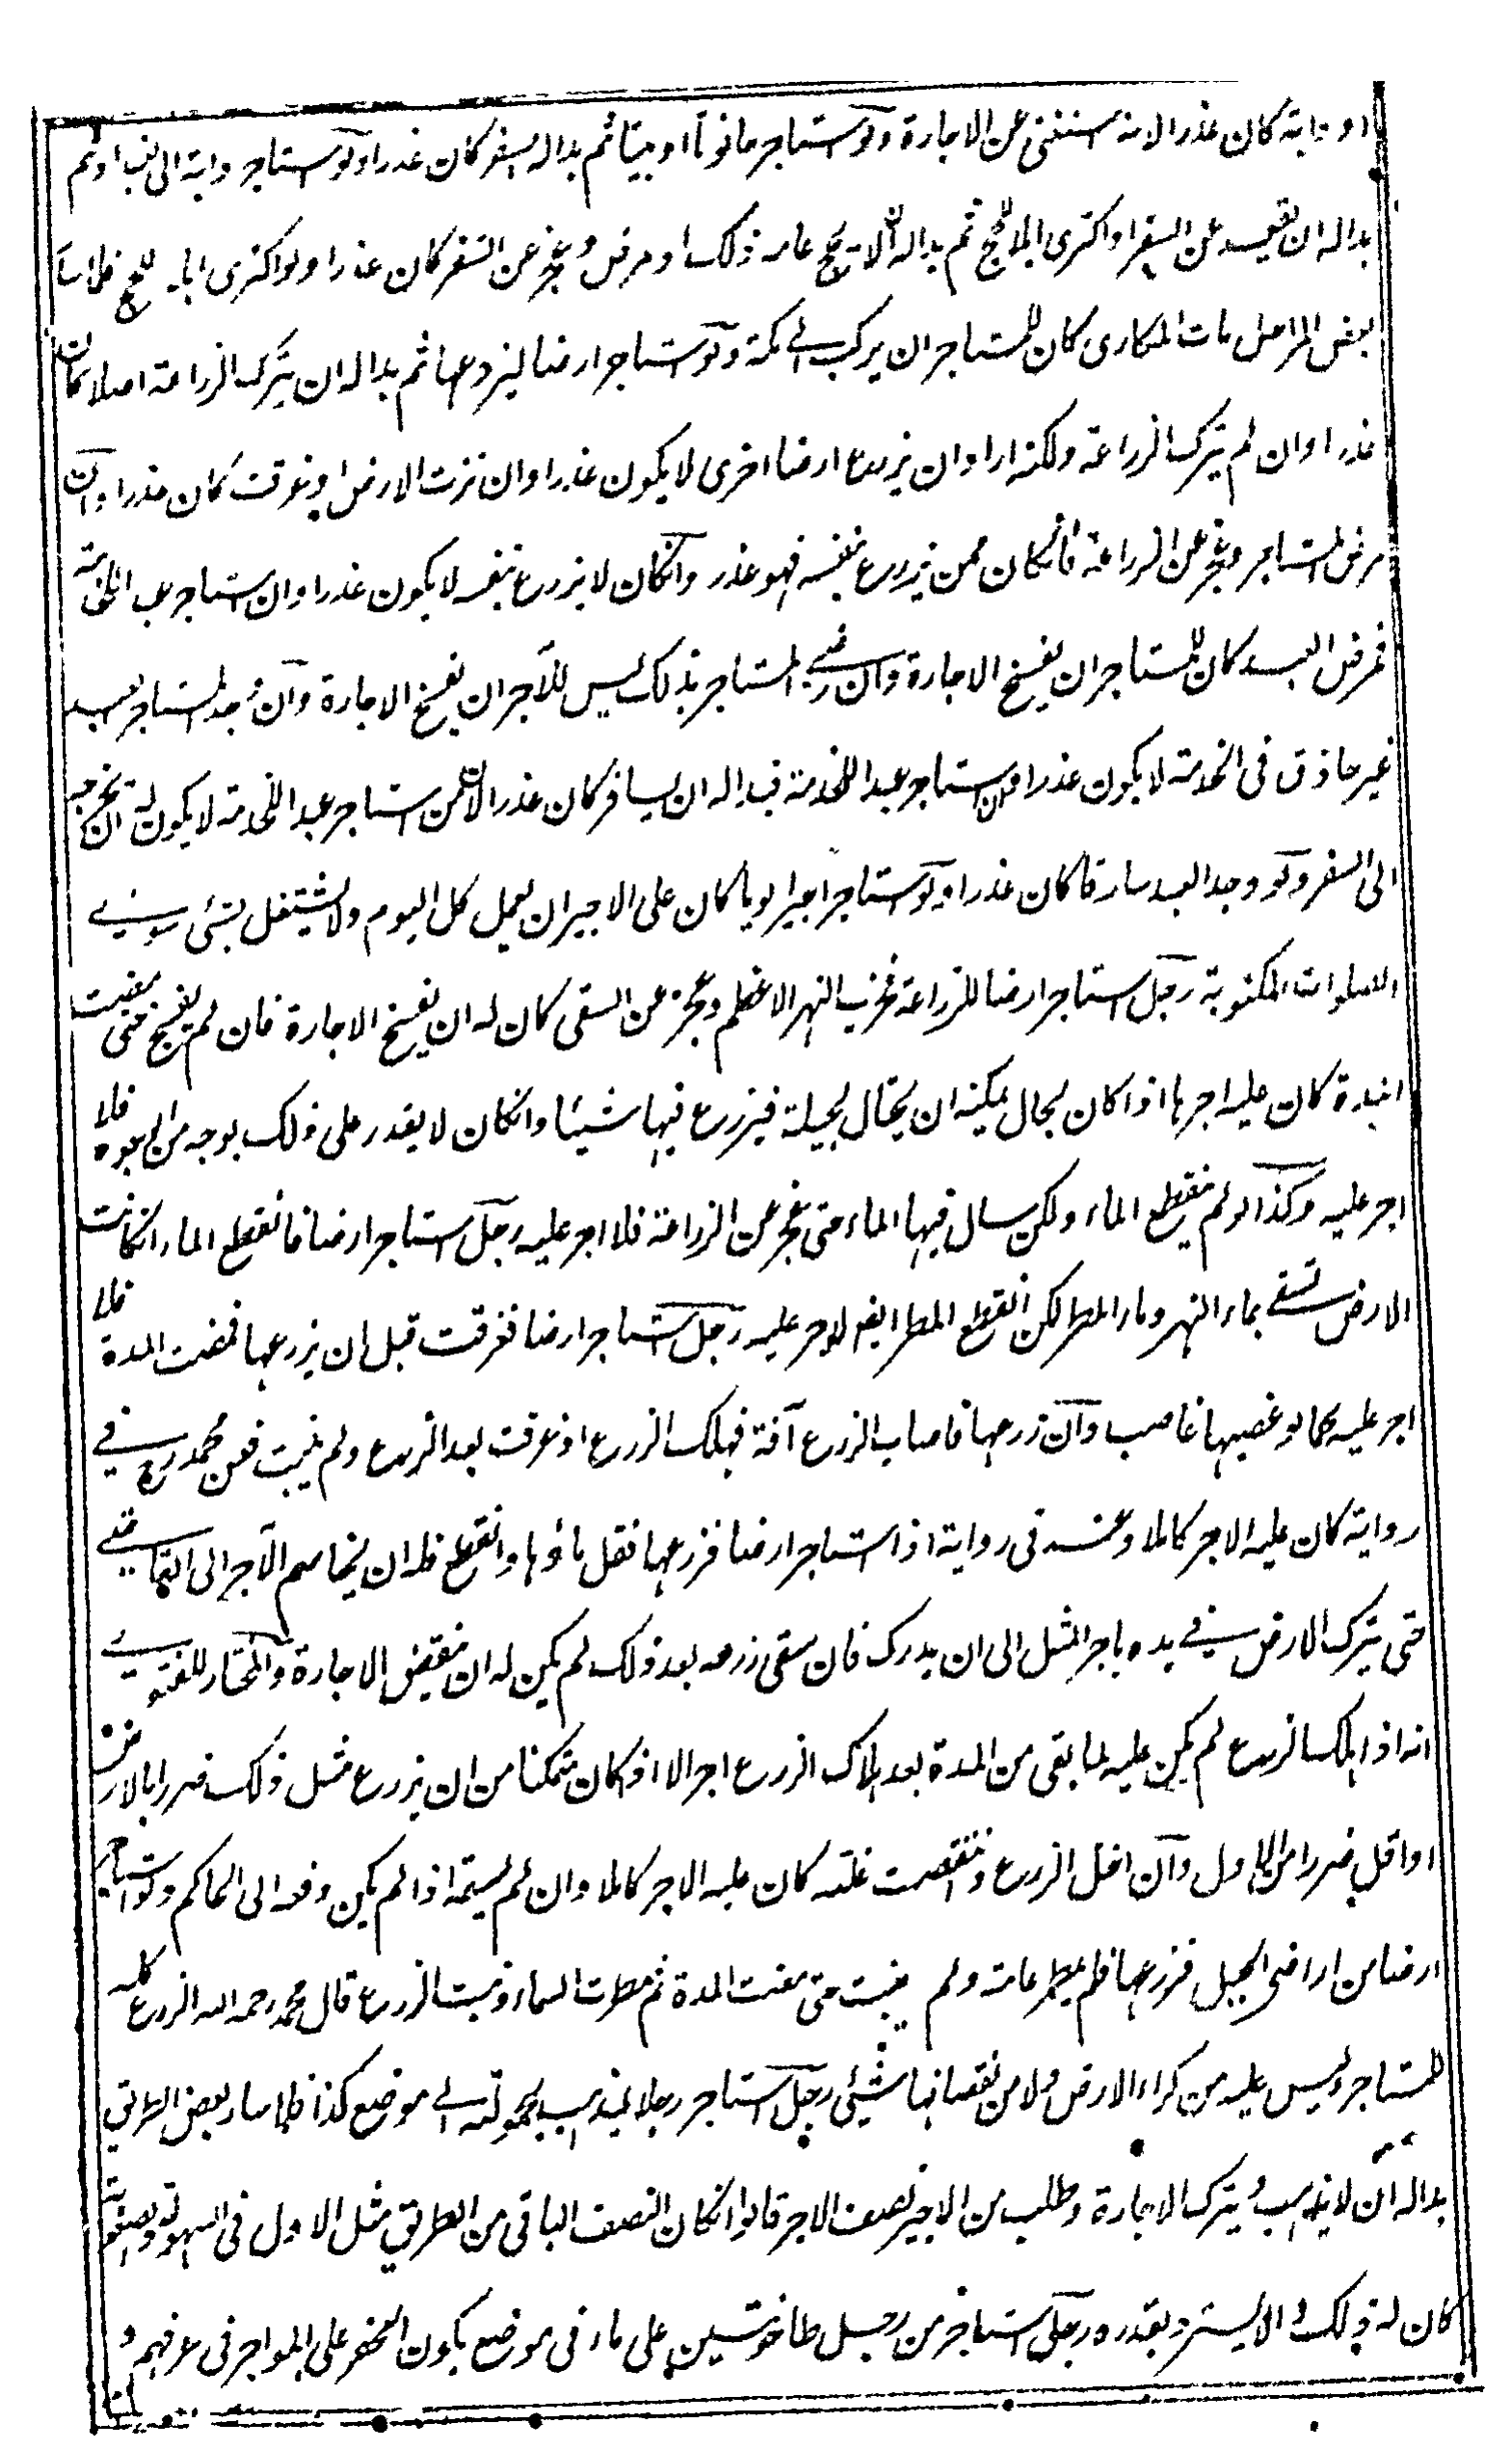 او دابة كان عذرا لانه استغنى عن الاجارة ولو استاجر حانوتا او بيتا ثم بدا له السفر كان عذرا ولو استاجر دابة الى بغداد ثم
بدا له ان يقعد عن السفر او اكترى ابلا للحج ثم بدا له ان لا يحج عامه ذلك او مرض وعجز عن السفر كان عذرا ولو اكترى ابلا للحج فلما سار
بعض المراحل مات المكارى كان للمستاجر ان يركب الى مكة ولو استاجر ارضا ليزرعها ثم بدا له ان يترك الزراعة اصلا كان
عذرا وان لم يترك الزراعة ولكنه اراد ان يزرع ارضا اخرى لا يكون عذرا وان نزت الارض او غرقت كان عذرا وان
مرض المستاجر وعجز عن الزراعة فانكان ممن يزرع بنفسه فهو عذر وانكان لا يزرع بنفسه لا يكون عذرا وان استاجر عبدا للخدمة
فمرض العبد كان للمستاجر ان يفسخ الاجارة وان رضى المستاجر بذلك ليس للآجر ان يفسخ الاجارة وان وجد المستاجر العبد
غير حاذق فى الخدمة لا يكون عذرا وان استاجر عبدا للخدمة فبدا له ان يسافر كان عذرا لان من استاجر عبدا للخدمة لا يكون له ان يخرجه
الى السفر ولو وجد العبد سارقا كان عذرا ولو استاجر اجيرا يوما كان على الاجير ان يعمل كل اليوم ولا يشتغل بشئ سوى
الصلوات المكتوبة رجل استاجر ارضا للزراعة فخرب النهر الاعظم وعجز عن السقى كان له ان يفسخ الاجارة فان لم يفسخ حتى مضت
المدة كان عليه اجرها اذا كان بحال يمكنه ان يحتال بحيلة فيزرع فيها شيئا وانكان لا يقدر على ذلك بوجه من الوجوه فلا
اجر عليه وكذا لو لم ينقطع الماء ولكن سال فيها الماء حتى عجز عن الزراعة فلا اجر عليه رجل استاجر ارضا فانقطع الماء انكانت
الارض تسقى بماء النهر وماء المطر لكن انقطع المطر ايضا لا اجر عليه رجل استاجر ارضا فغرقت قبل ان يزرعها فمضت المدة فلا
اجر عليه كما لو غصبها غاصب وان زرعها فاصاب الزرع آفة فهلك الزرع او غرقت بعد الزرع ولم ينبت فعن محمد رح فى
رواية كان عليه الاجر كاملا وعنه فى رواية اذا استاجر ارضا فزرعها فقل ماؤها وانقطع فله ان يخاصم الآجر الى القاضى
حتى يترك الارض فى يده باجر المثل الى ان يدرك فان سقى زرعه بعد ذلك لم يكن له ان ينقض الاجارة والمختار للفتوى
انه اذا هلك الزرع لم يكن عليه لما بقى من المدة بعد هلاك الزرع اجر الا اذا كان متمكنا من ان يزرع مثل ذلك ضررا بالارض
او اقل ضررا من الاول وان اقل الزرع وانتقصت غلته كان عليه الاجر كاملا وان لم يستمه اذا لم يكن رفعه الى الحاكم ولو استاجر
ارضا من اراضى الجبل فزرعها فلم يمطر عامه ولم ينبت حتى مضت المدة ثم مطرت السماء ونبت الزرع قال محمد رحمه الله الزرع كله
للمستاجر وليس عليه من كراء الارض ولا من نقصانها شئ رجل استاجر رجلا ليذهب بحمولته الى موضع كذا فلما سار بعض الطريق
بدا له ان لا يذهب ويترك الاجارة وطلب من الاجير نصف الاجر قالوا انكان النصف الباقى من الطريق مثل الاول فى السهولة والصعوبة
كان له ذلك والا يسترد بقدره رجل استاجر من رجل طاحونتين على ماء فى موضع يكون الحفر على المواجر فى عرفهم و